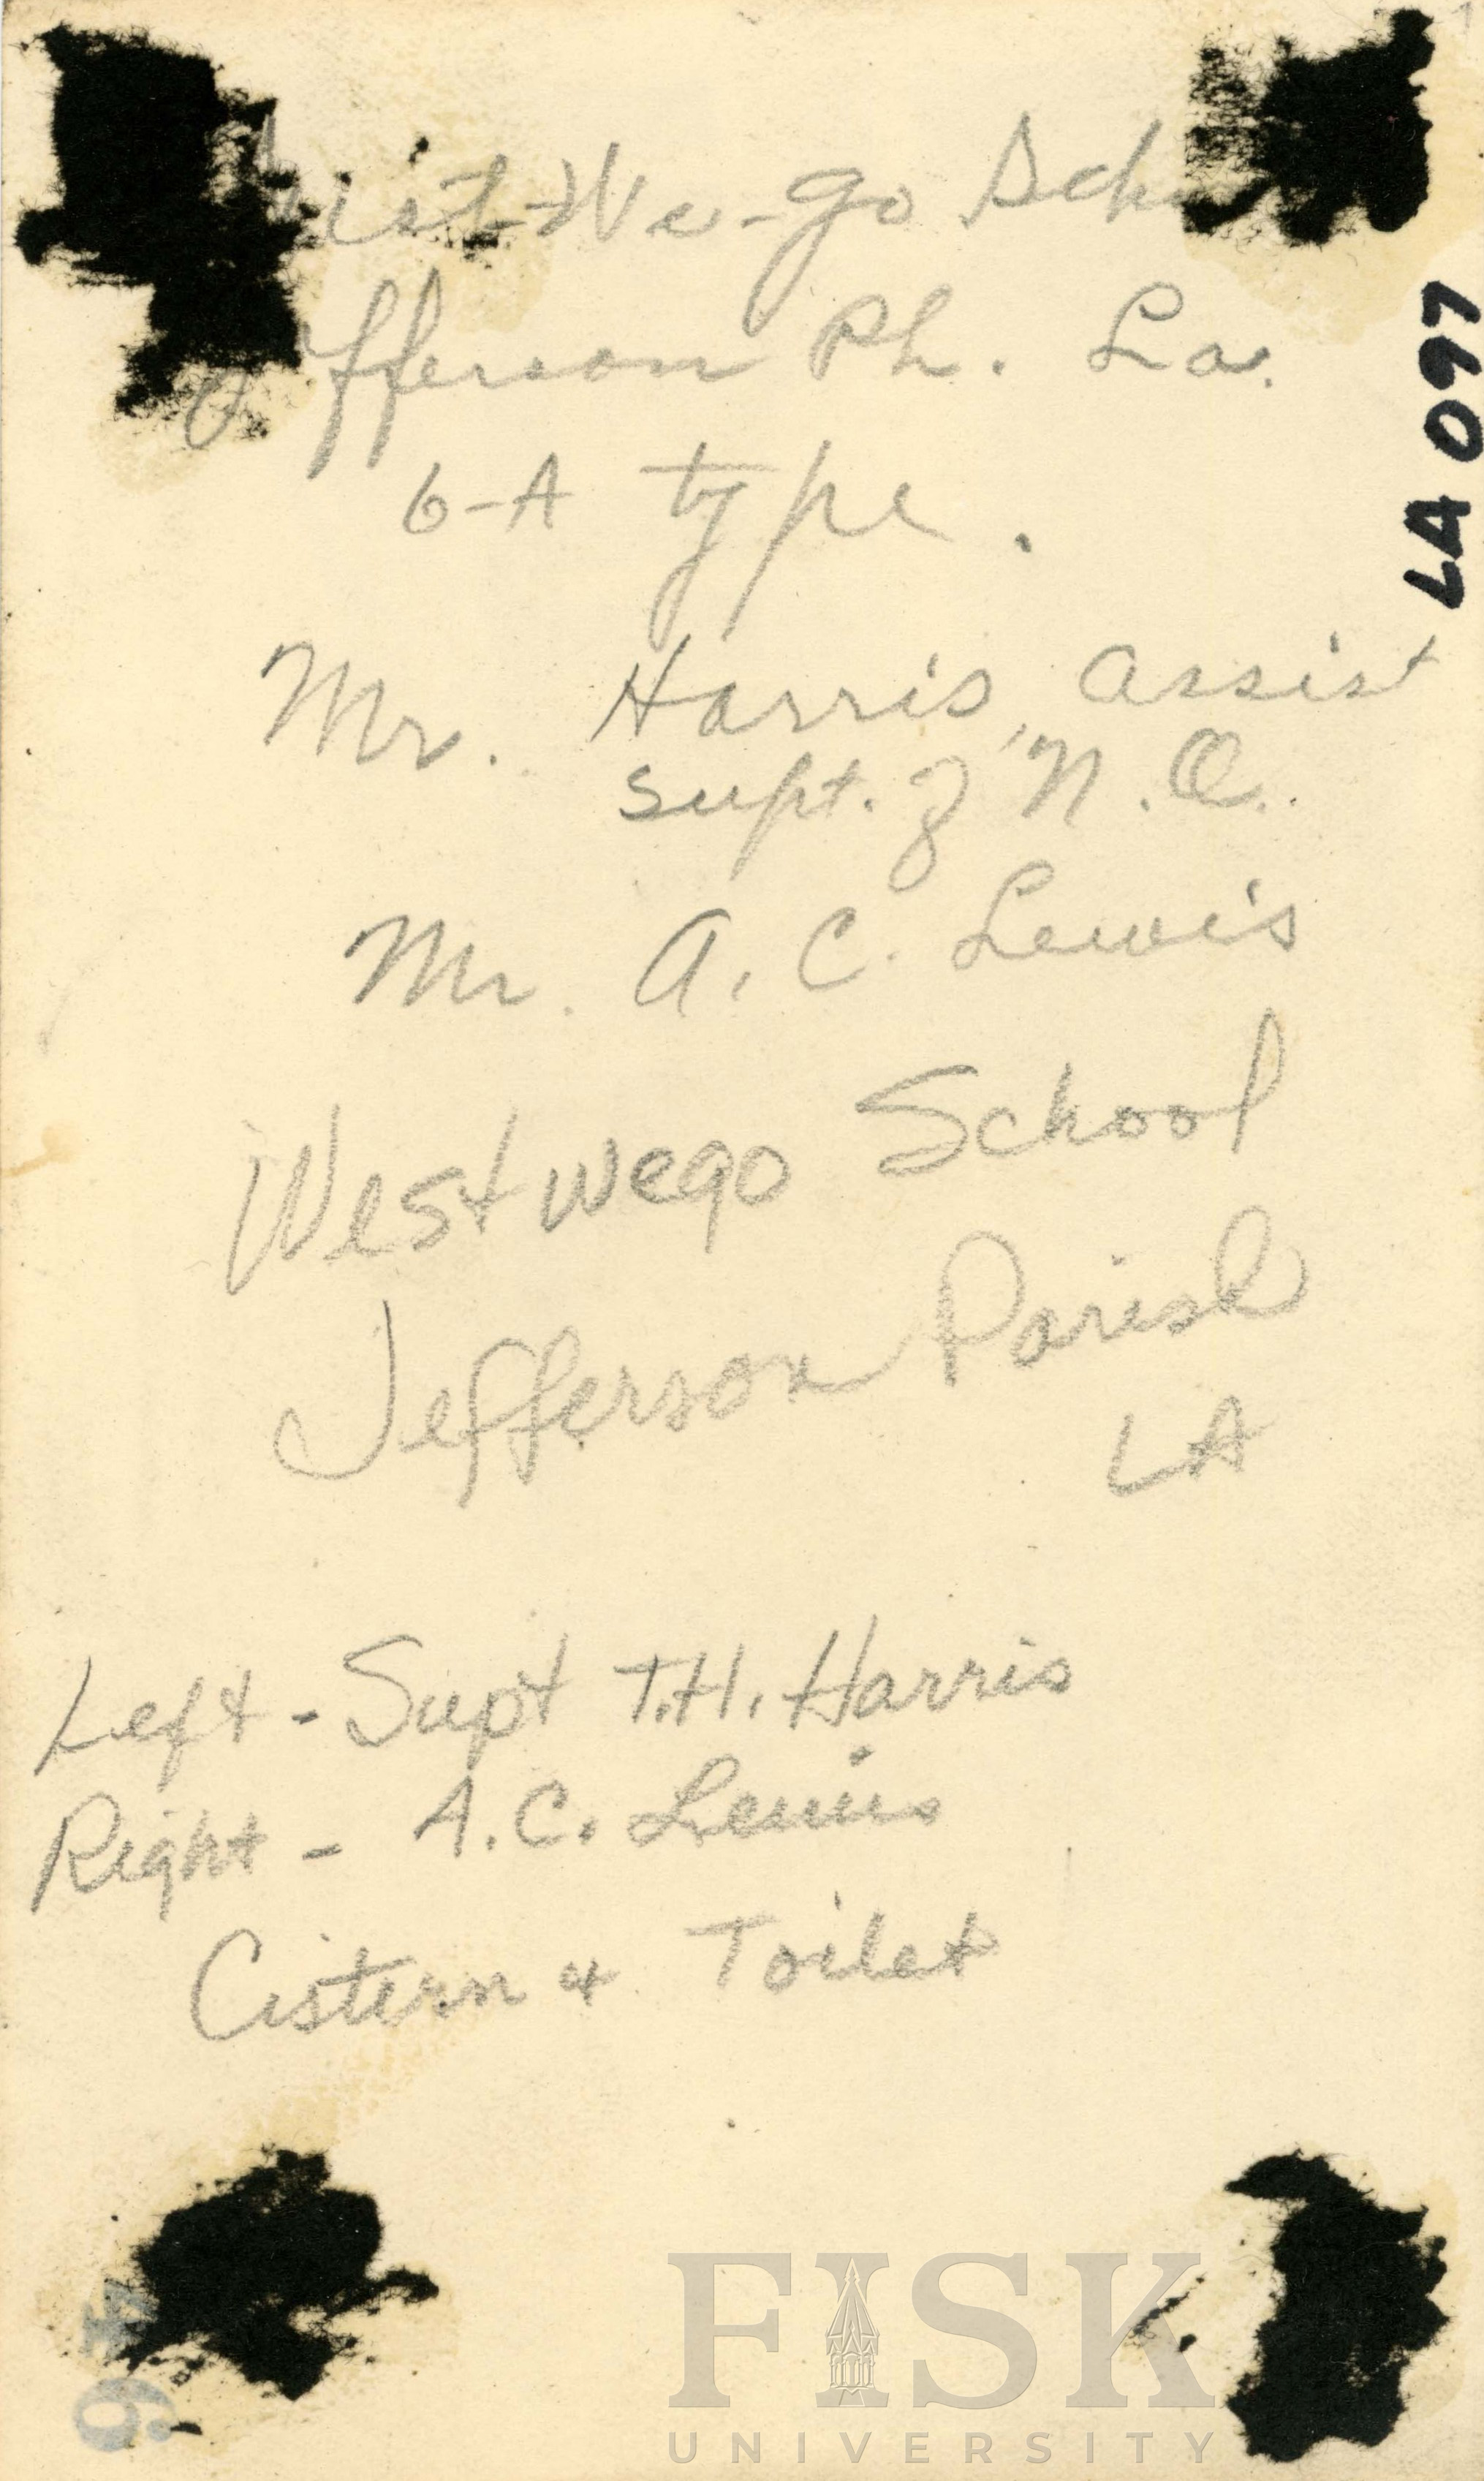 West-We-go Scho
Jefferson Ph. La.
6-A type.
Mr. Harris, assist
supt. of N.O.
Mr. A. C. Lewis
Westwego School
Jefferson Parish
LA
Left - Supt T.H. Harris
Right - A.C. Lewis
Cistern & Toilet
LA 097
FISK
UNIVERSITY